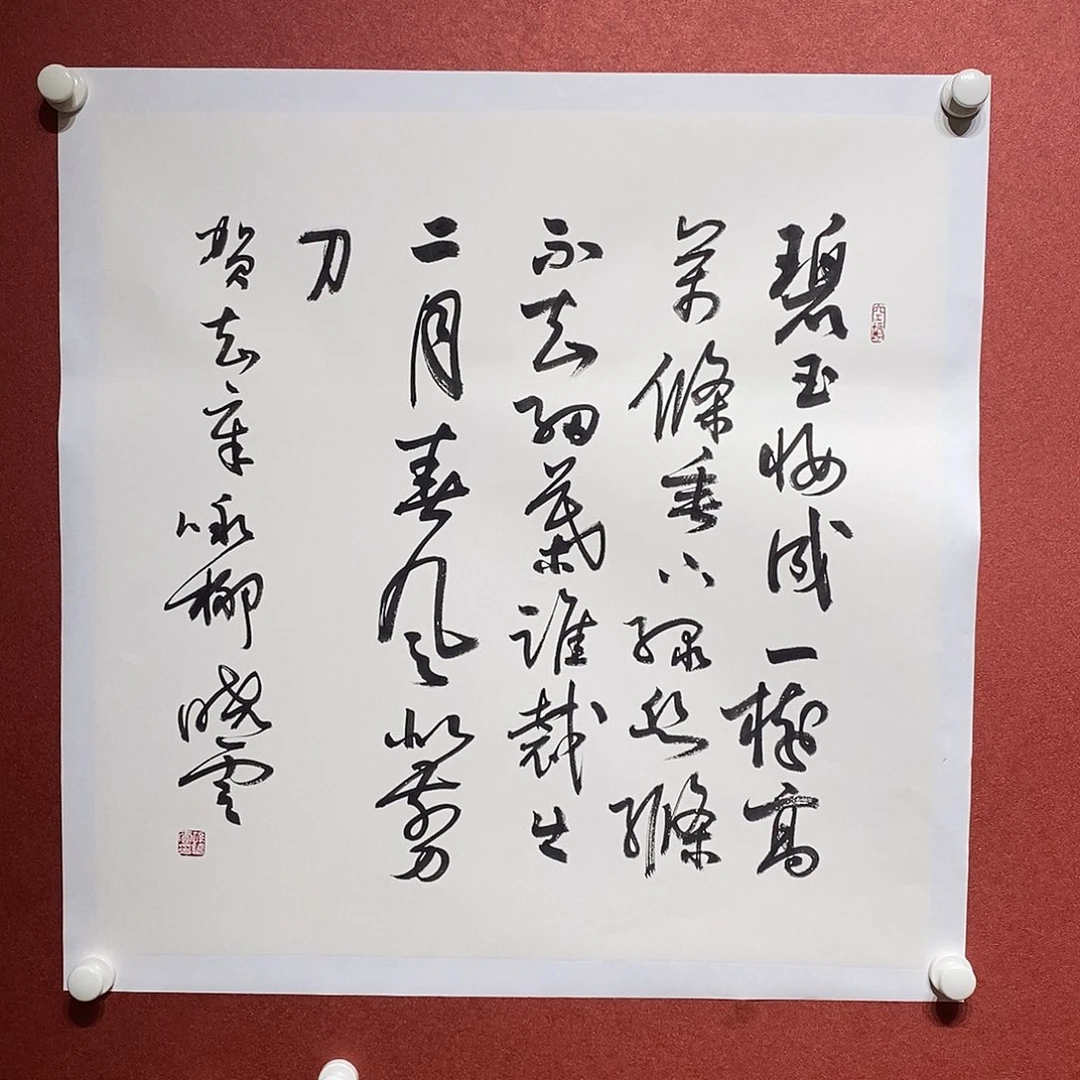 碧玉妝成一樹高
萬條垂下綠絲縧
不知細葉誰裁出
二月春風似剪
刀
賀知章咏柳 曉雲